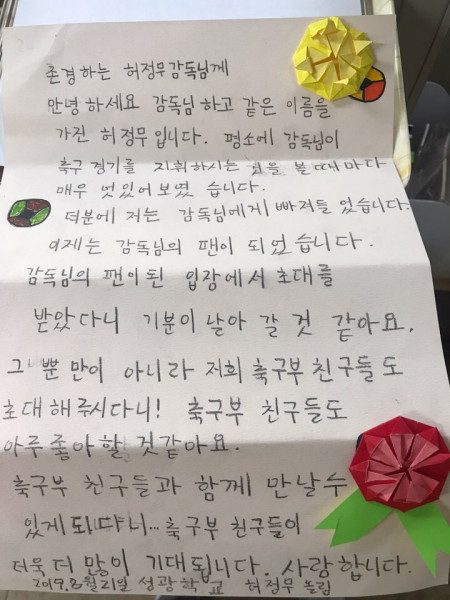 존경하는 허정무감독님께
안녕하세요 감독님하고 같은 이름을
가진 허정무입니다. 평소에 감독님이
축구 경기를 지휘하시는 것을 볼때마다
매우 멋있어보였 습니다.
더분에 저는 감독님에게 빠져들었습니다.
이제는 감독님의 팬이 되었습니다.
감독님의 팬이된 입장에서 초대를
받았다니 기분이 날아 갈 것 같아요.
그 뿐만이 아니라 저희 축구부 친구들도
초대해주시다니! 축구부 친구들도
아주좋아할 것같아요.
축구부 친구들과 함께 만날수
있게되다니... 축구부 친구들이
더욱더 많이 기대됩니다. 사랑합니다.
2019.3월21일 성광학교 허정무 올림